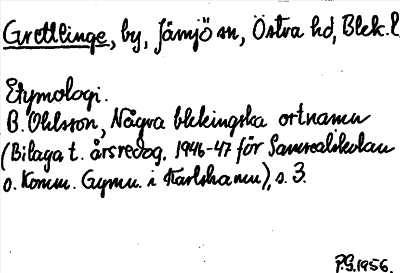 Grettlinge, by, Jämjö sn, Östra hd, Blek. l
Etymologi.
B. Ohlsson, Några blekingska ortnamn
(Bilaga t. årsredog. 1946-47 för Samrealskolan
o. Komm. Gymn. i Karlshamn), s. 3.
P.G. 1956.